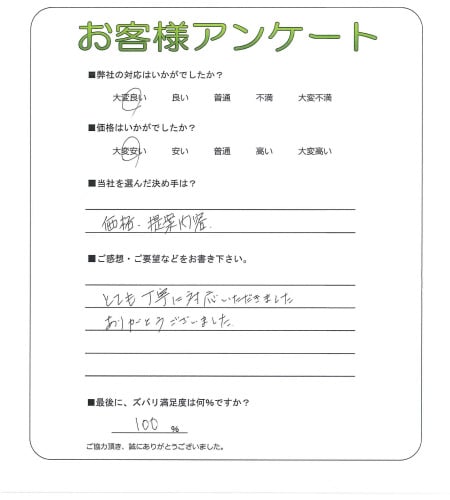 お客様アンケート
■弊社の対応はいかがでしたか？
大変良い 良い 普通 不満 大変不満
■価格はいかがでしたか？
大変安い 安い 普通 高い 大変高い
■当社を選んだ決め手は？
価格、提案内容.
■ご感想・ご要望などをお書き下さい。
とても丁寧に対応いただきました
ありがとうございました.
■最後に、ズバリ満足度は何％ですか？
100 ％
ご協力頂き、誠にありがとうございました。